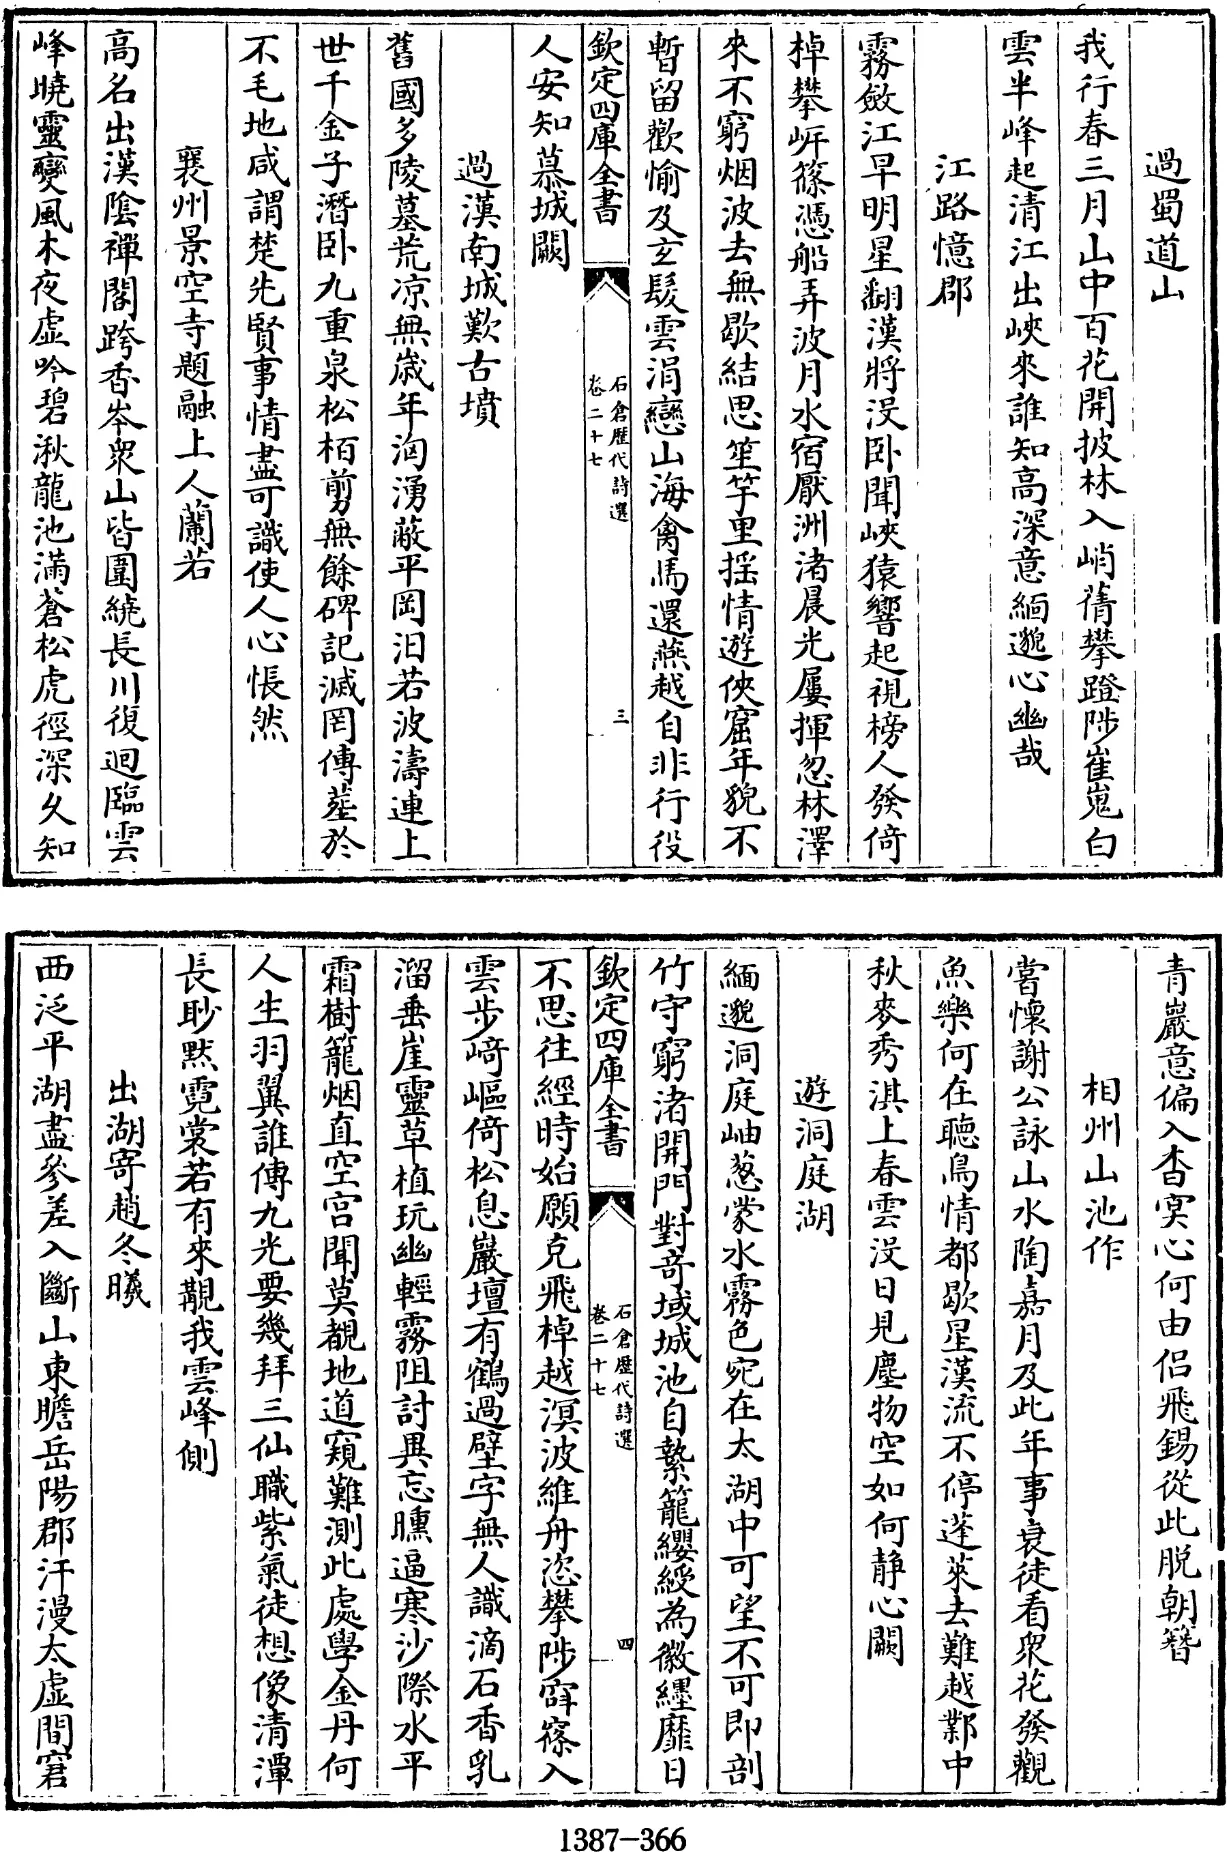 過蜀道山
我行春三月山中百花開披林入峭蒨攀蹬陟崔嵬白
雲半峰起清江出峽來誰知高深意緬邈心幽哉
江路憶郡
霧斂江早明星翻漢將没卧聞峽猿響起視榜人發倚
棹攀岍篠憑船弄波月水宿厭洲渚晨光屢揮忽林澤
來不窮烟波去無歇結思笙竽里揺情遊俠窟年貌不
暫留歡愉及玄髮雲涓戀山海禽馬還燕越自非行役
欽定四庫全書
石倉歴代詩選
卷二十七
三
人安知慕城闕
過漢南城歎古墳
舊國多陵墓荒凉無歳年洶湧蔽平岡汨若波濤連上
世千金子潛卧九重泉松栢剪無餘碑記滅罔傳塟於
不毛地咸謂楚先賢事情盡可識使人心悵然
襄州景空寺題融上人蘭若
高名出漢隂禪閣跨香岑衆山皆圍繞長川復迴臨雲
峰曉靈變風木夜虚吟碧湫龍池滿蒼松虎徑深久知
青巖意偏入杳冥心何由侣飛錫從此脱朝簪
相州山池作
嘗懷謝公詠山水陶嘉月及此年事衰徒看衆花發觀
魚樂何在聴鳥情都歇星漢流不停蓬萊去難越鄴中
秋麥秀淇上春雲没日見塵物空如何静心闕
遊洞庭湖
緬邈洞庭岫葱蒙水霧色宛在太湖中可望不可即剖
竹守窮渚開門對竒域城池自縶籠纓綬為徽纆靡日
欽定四庫全書
石倉歴代詩選
卷二十七
四
不思往經時始願克飛棹越溟波維舟恣攀陟窅窱入
雲步﨑嶇倚松息巖壇有鶴過壁字無人識滴石香乳
溜垂崖靈草植玩幽輕霧阻討異忘曛逼寒沙際水平
霜樹籠烟直空宫聞莫覩地道窺難測此處學金丹何
人生羽翼誰傳九光要幾拜三仙職紫氣徒想像清潭
長眇黙霓裳若有來覯我雲峰側
出湖寄趙冬曦
西泛平湖盡參差入斷山東瞻岳陽郡汗漫太虚間窘
1387-366